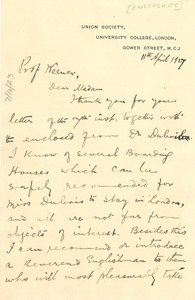 (ENCLOSURE)
UNION SOCIETY,
UNIVERSITY COLLEGE, LONDON,
GOWER STREET, W.C.1
11th April 1927
Prof Werner,
Dear Madam
Thank you for your
letter of the 9th inst. together with
the enclosed from Dr Dubois.
I know of several Boarding
Houses which can be
safely recommended for
Miss Dubois to stay in London,
and all are not far from
objects of interest. Besides this
I can recommend or introduce
a Reverend Englishman to them
who will most pleasurably take